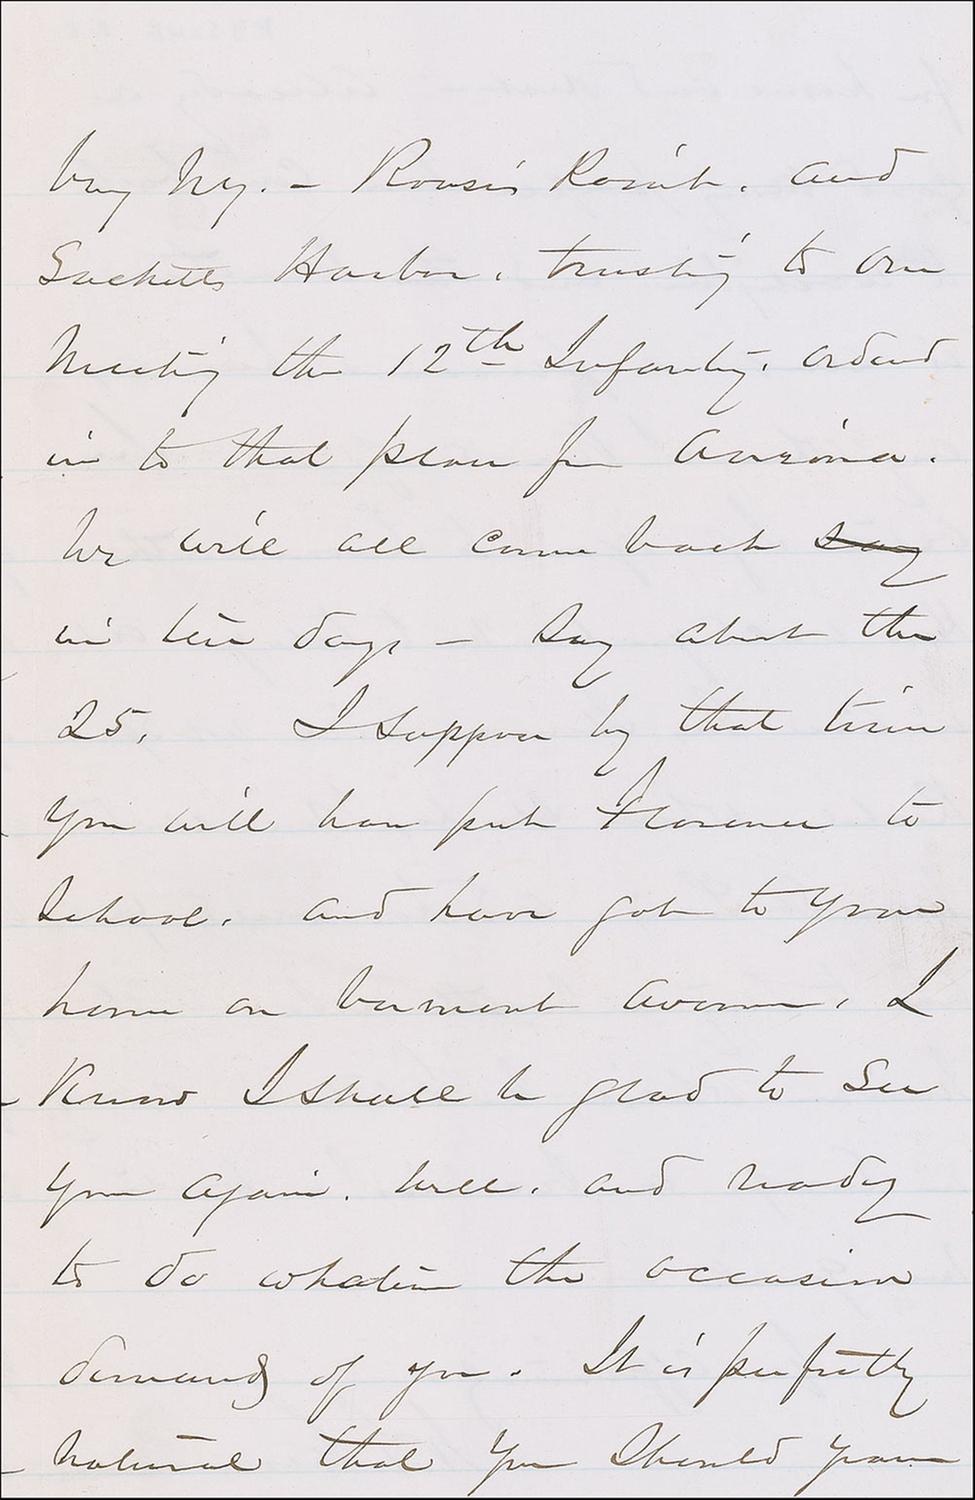 burg NY. – Rouse's Point, and
Sacketts Harbor, trusting to our
meeting the 12th Infantry, ordered
in to that place for Arizona.
We will all come back say
in ten days – say about the
25, I suppose by that time
you will have put Florence to
School, and have got to your
home on Vermont Avenue, I
Know I shall be glad to see
you again, well, and ready
to do whatever the occasion
demands of you. It is perfectly
natural that you should yearn